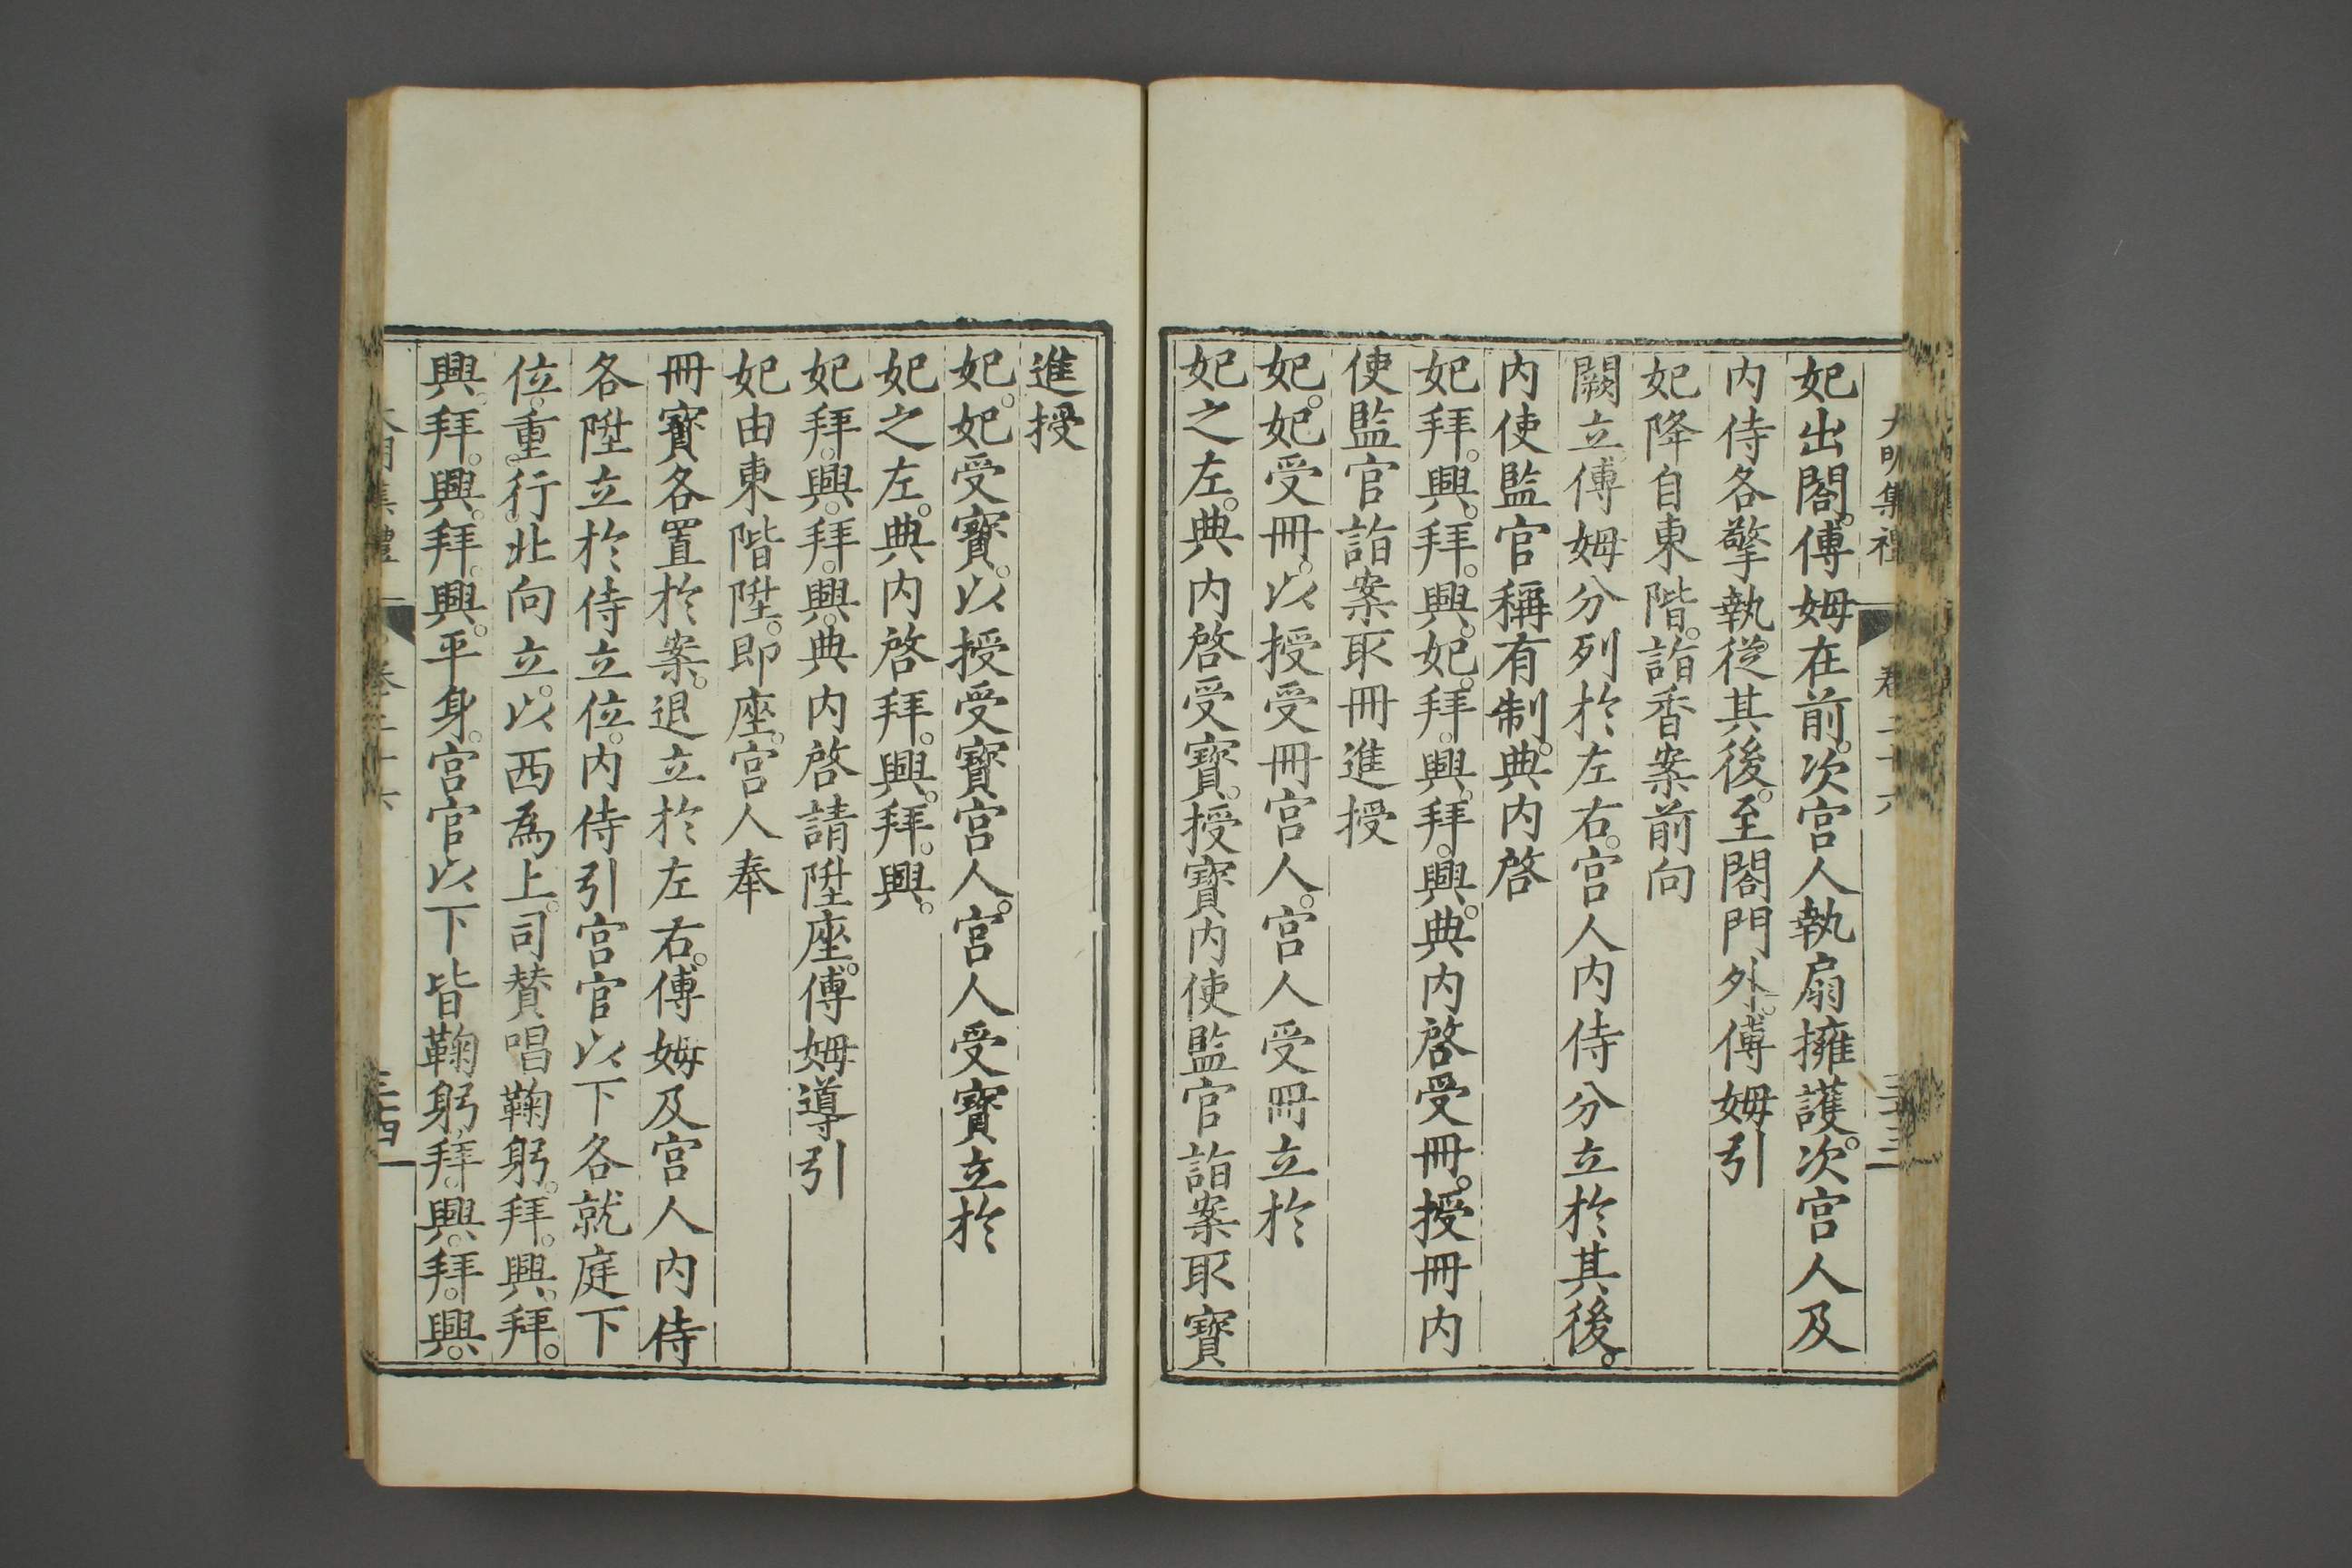 大明集禮
卷二十六
三十三
妃出閤。傅姆在前。次宫人執扇擁護。次宫人及
内侍各擎執從其後。至閤門外。傅姆引
妃降自東階。詣香案前向
闕立。傅姆分列於左右。宫人内侍分立於其後。
内使監官稱有制。典内啓
妃拜。興。拜。興。妃。拜。興。拜。興。典内啓受冊。授冊内
使監官詣案取冊進授
妃。妃受冊。以授受冊宫人。宫人受冊立於
妃之左。典内啓受寶。授寶内使監官詣案取寶
進授
妃。妃受寶。以授受寶宫人。宫人受寶立於
妃之左。典内啓拜。興。拜。興。
妃拜。興。拜。興。典内啓請陞座。傅姆導引
妃由東階陞。即座。宫人奉
冊寶各置於案。退立於左右。傅姆及宫人内侍
各陞立於侍立位。内侍引宫官以下各就庭下
位。重。行。北向立。以西為上。司賛唱鞠躬。拜。興。拜。
興。拜。興。拜。興。平身。宫官以下皆鞠躬。拜。興。拜。興。
大明集禮
卷二十六
三十四